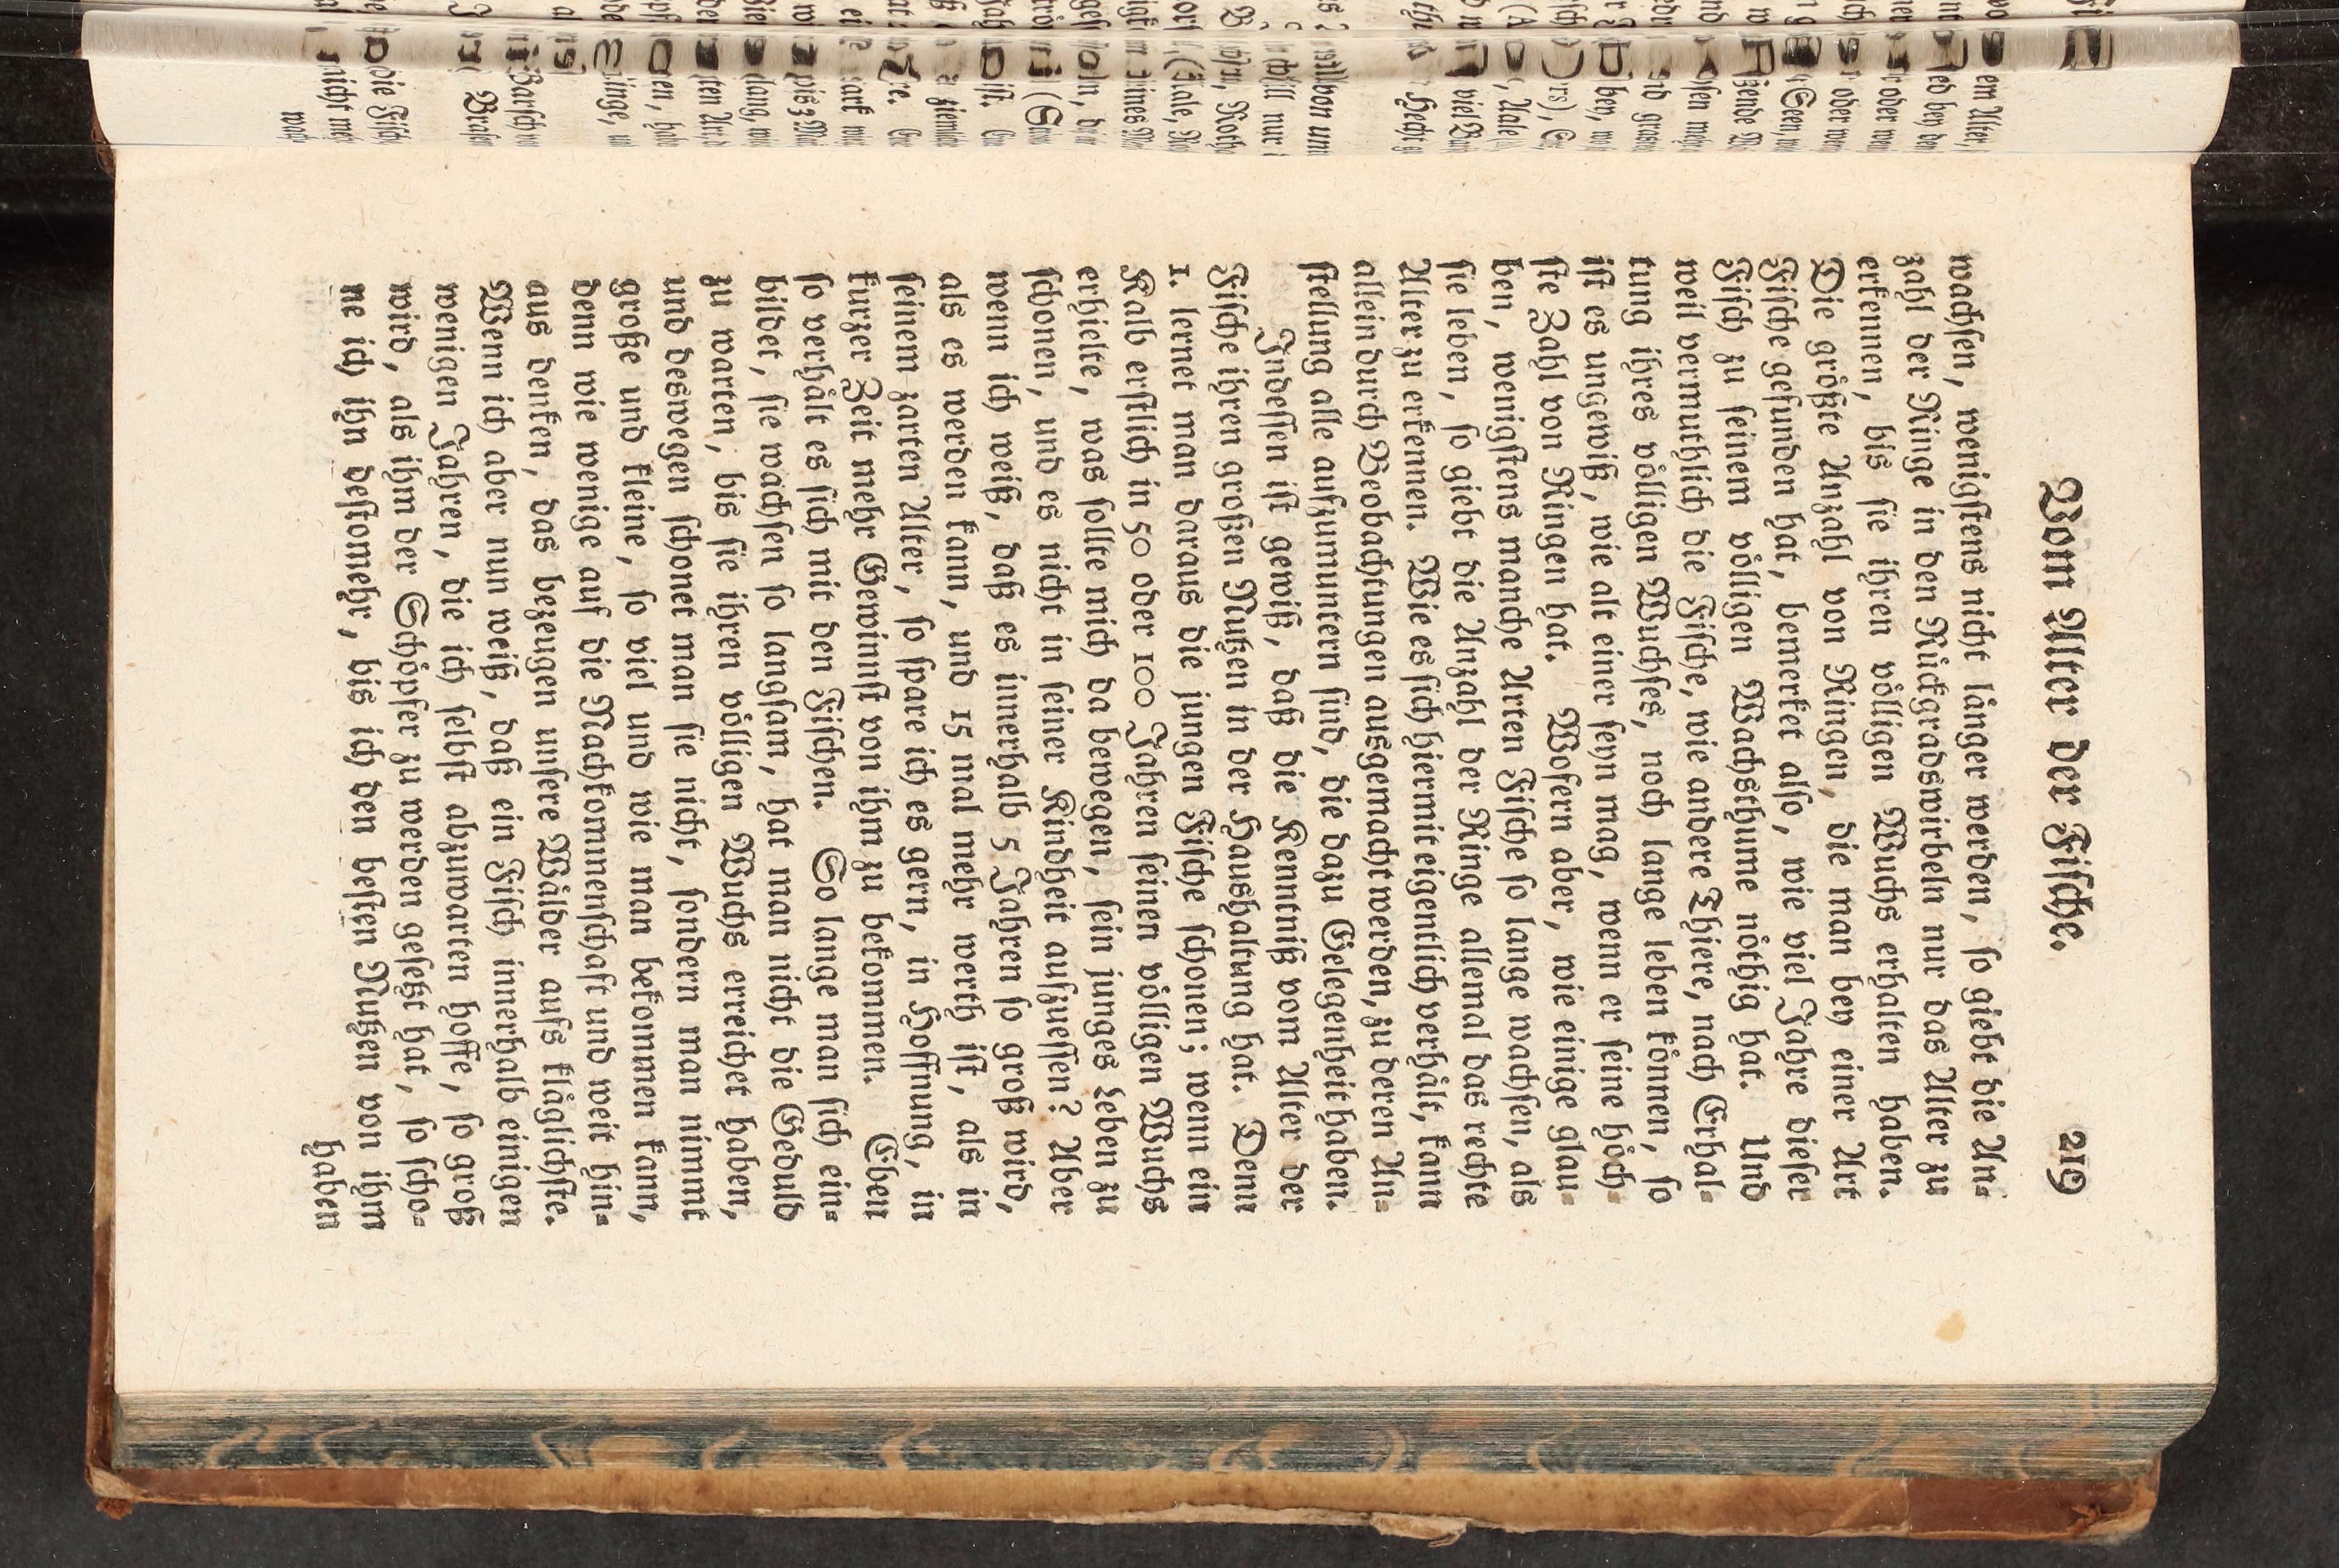 Vom Alter der Fische. 219
wachsen, wenigstens nicht länger werden, so giebt die An-
zahl der Ringe in den Rückgradswirbeln nur das Alter zu
erkennen, bis sie ihren völligen Wuchs erhalten haben.
Die größte Anzahl von Ringen, die man bey einer Art
Fische gefunden hat, bemerket also, wie viel Jahre dieser
Fisch zu seinem völligen Wachsthume nöthig hat. Und
weil vermuthlich die Fische, wie andere Thiere, nach Erhal-
tung ihres völligen Wuchses, noch lange leben können, so
ist es ungewiß, wie alt einer seyn mag, wenn er seine höch-
ste Zahl von Ringen hat. Wofern aber, wie einige glau-
ben, wenigstens manche Arten Fische so lange wachsen, als
sie leben, so giebt die Anzahl der Ringe allemal das rechte
Alter zu erkennen. Wie es sich hiermit eigentlich verhält, kann
allein durch Beobachtungen ausgemacht werden, zu deren An-
stellung alle aufzumuntern sind, die dazu Gelegenheit haben.
Indessen ist gewiß, daß die Kenntniß vom Alter der
Fische ihren großen Nutzen in der Haushaltung hat. Denn
1. lernet man daraus die jungen Fische schonen; wenn ein
Kalb erstlich in 50 oder 100 Jahren seinen völligen Wuchs
erhielte, was sollte mich da bewegen, sein junges Leben zu
schonen, und es nicht in seiner Kindheit aufzuessen? Aber
wenn ich weiß, daß es innerhalb 5 Jahren so groß wird,
als es werden kann, und 15 mal mehr werth ist, als in
seinem zarten Alter, so spare ich es gern, in Hoffnung, in
kurzer Zeit mehr Gewinnst von ihm zu bekommen. Eben
so verhält es sich mit den Fischen. So lange man sich ein-
bildet, sie wachsen so langsam, hat man nicht die Geduld
zu warten, bis sie ihren völligen Wuchs erreichet haben,
und deswegen schonet man sie nicht, sondern man nimmt
große und kleine, so viel und wie man bekommen kann,
denn wie wenige auf die Nachkommenschaft und weit hin-
aus denken, das bezeugen unsere Wälder aufs kläglichste.
Wenn ich aber nun weiß, daß ein Fisch innerhalb einigen
wenigen Jahren, die ich selbst abzuwarten hoffe, so groß
wird, als ihm der Schöpfer zu werden gesetzt hat, so scho-
ne ich ihn destomehr, bis ich den besten Nutzen von ihm
haben